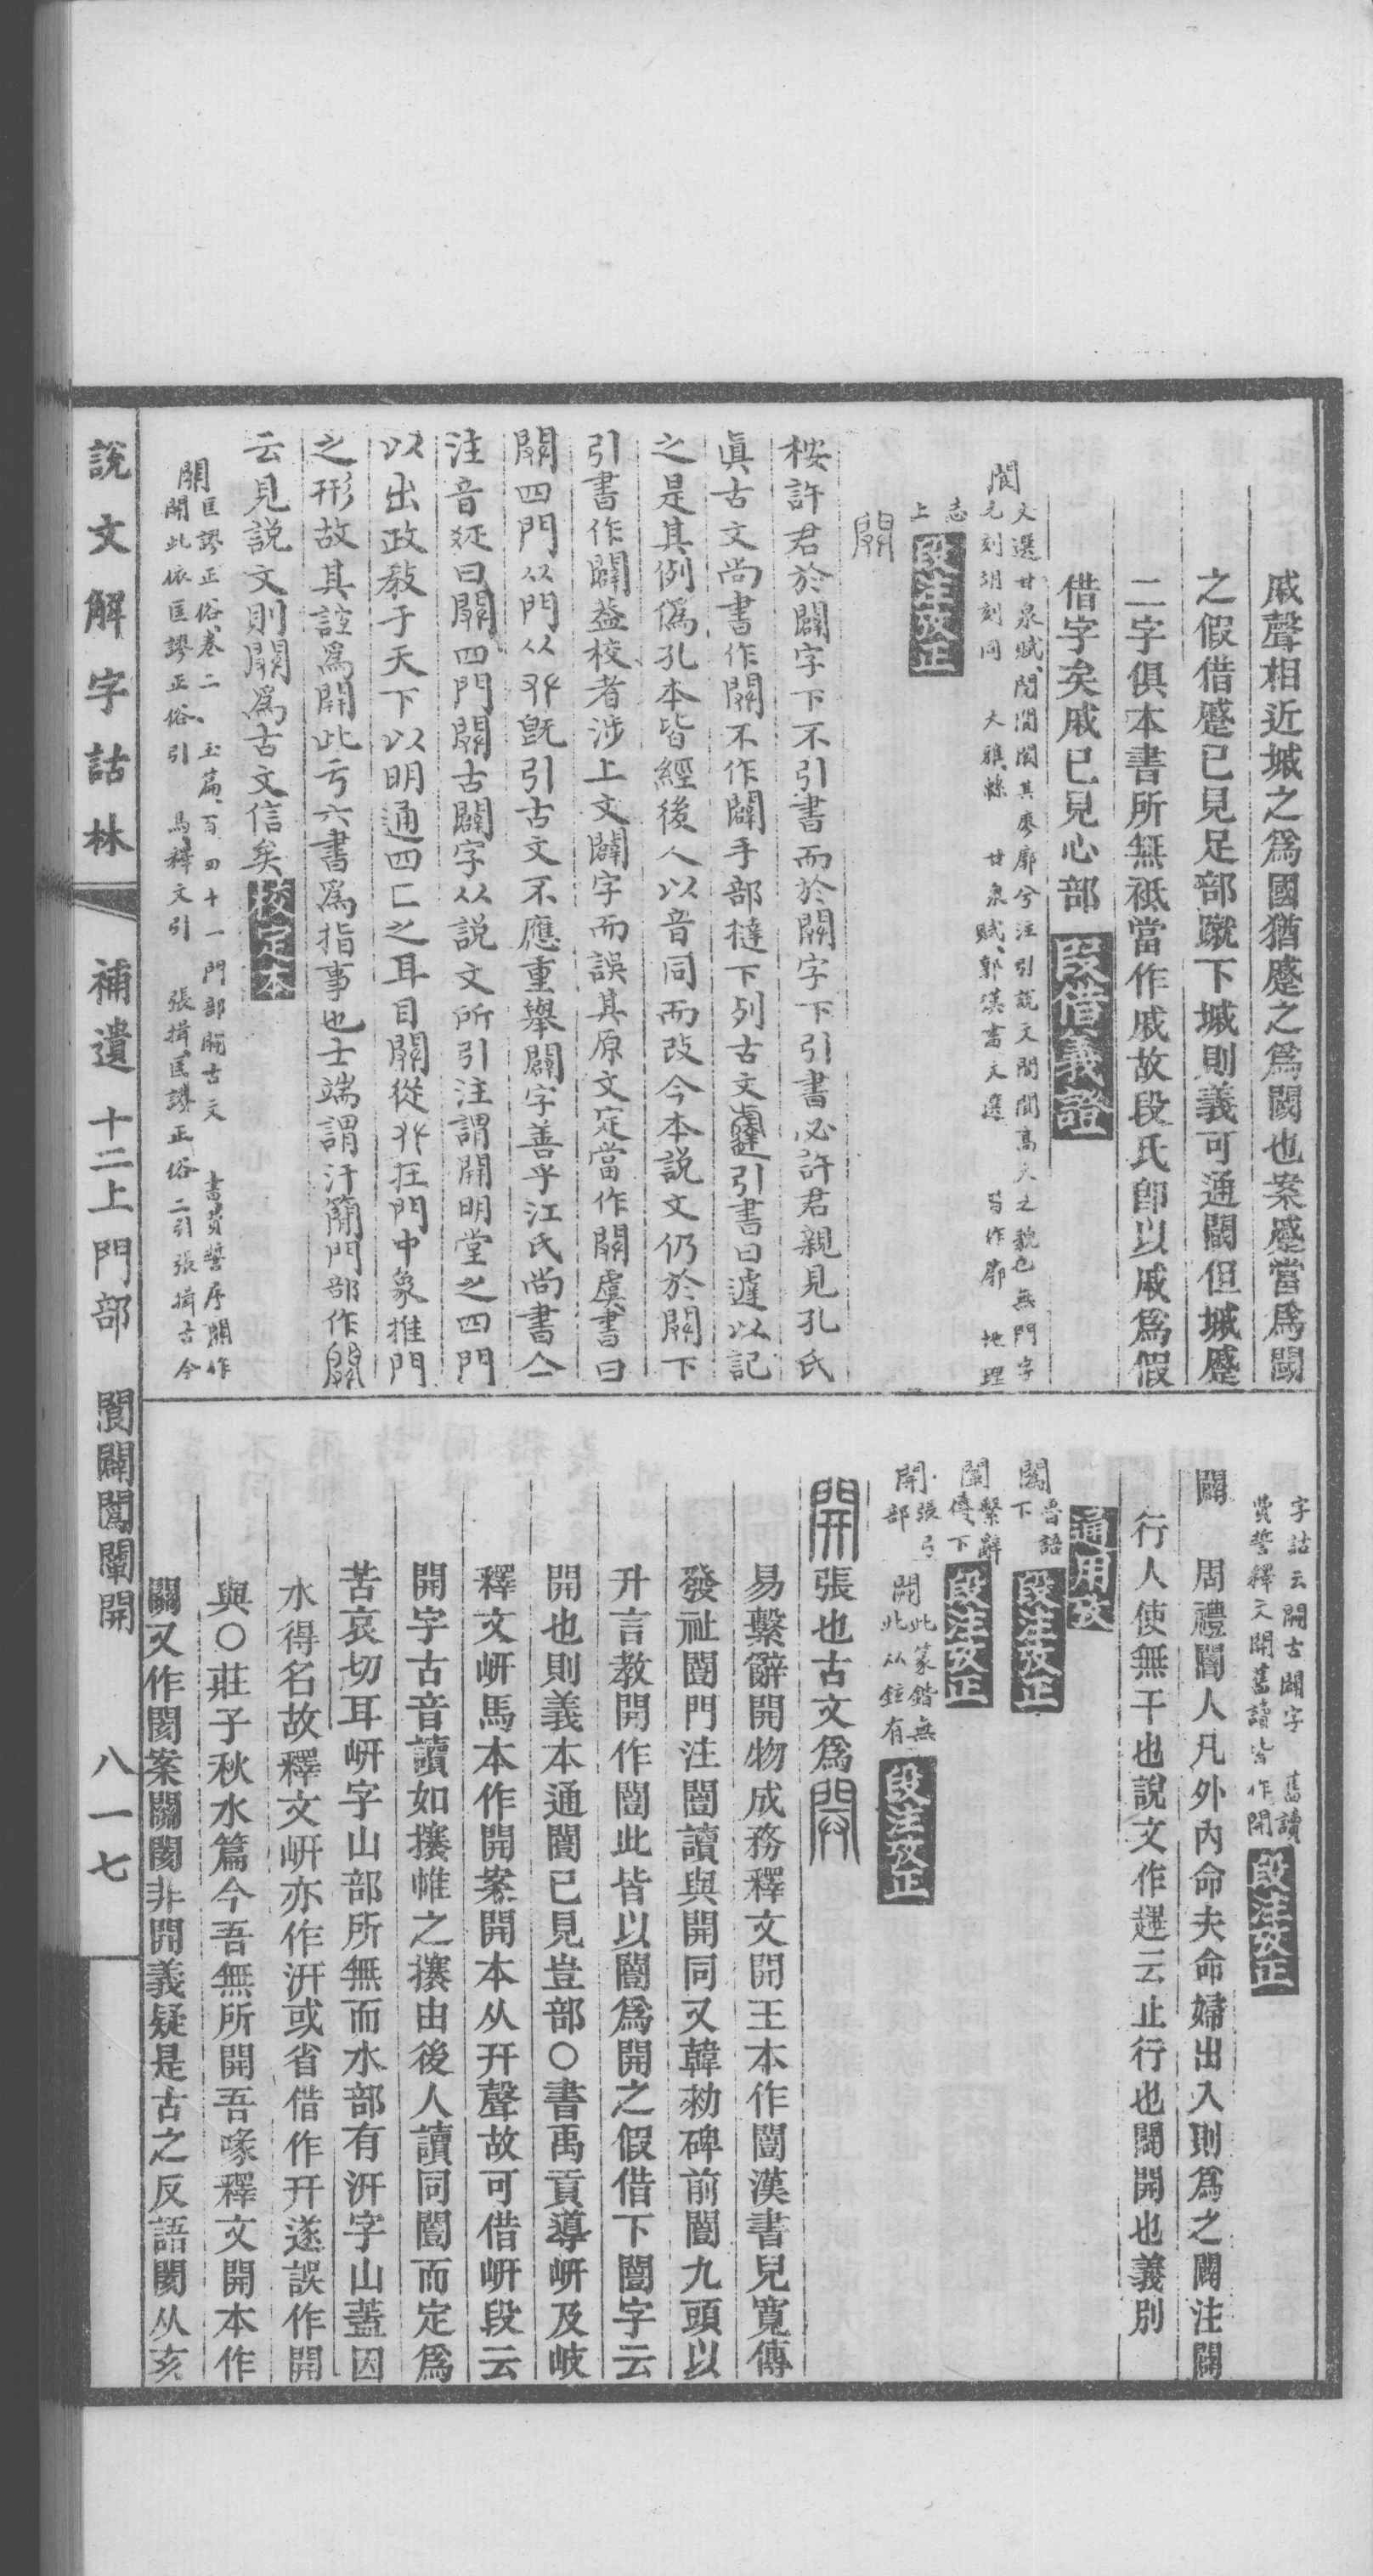 戚聲相近城之爲國猶蹙之爲閾也案蹙當爲閾
之假借蹙已見足部蹴下墄則義可通閾但墄蹙
二字俱本書所無祇當作戚故段氏卽以戚爲假
借字矣戚已見心部 段借義證
閬 文選甘泉賦閌閬閬其廖廓兮注引說文閬閬高大之皃也無門字
尤刻胡刻同 大雅緜 甘泉賦郭漢書文選 皆作廓 地理
志
上 段注攷正
𨳿
桉許君於闢字下不引書而於𨳿字下引書必許君親見孔氏
眞古文尚書作𨳿不作闢手部撻下列古文𨘗引書曰𨘗以記
之是其例僞孔本皆經後人以音同而改今本説文仍於𨳿下
引書作闢葢校者涉上文闢字而誤其原文定當作𨳿虞書曰
𨳿四門从門从𠬜旣引古文不應重舉闢字善乎江氏尚書亼
注音疏曰𨳿四門𨳿古闢字从説文所引注謂開明堂之四門
以出政敎于天下以明通四匚之耳目𨳿從𠬜在門中象推門
之形故其誼爲開此亏六書爲指事也士端謂汗簡門部作𨳿
云見説文則𨳿爲古文信矣 校定本
𨳿 匡謬正俗卷二、玉篇、百四十一門部𨳿古文 書費誓序𨳿作
開此依匡謬正俗引 馬釋文引 張揖匡謬正俗二引張揖古今
字詁云𨳿古闢字 舊讀
費誓釋文開舊讀皆作開 段注攷正
闢 周禮閽人凡外內命夫命婦出入則爲之闢注闢
行人使無干也說文作趩云止行也闢開也義別
通用攷
闖 晉語
下 段注攷正
闡 繫辭
傳下 段注攷正
開 張弓
部 開 此篆鍇無
此从鉉有 段注攷正
開 張也古文爲𨴂
易繫辭開物成務釋文開王本作闓漢書兒寬傳
發祉闓門注闓讀與開同又韓勑碑前闓九頭以
升言教開作闓此皆以闓爲開之假借下闓字云
開也則義本通闓已見豈部○書禹貢導岍及岐
釋文岍馬本作開案開本从幵聲故可借岍段云
開字古音讀如攐帷之攐由後人讀同闓而定爲
苦哀切耳岍字山部所無而水部有汧字山蓋因
水得名故釋文岍亦作汧或省借作幵遂誤作開
與○莊子秋水篇今吾無所開吾喙釋文開本作
關又作閡案關閡非開義疑是古之反語閡从亥
說文解字詁林 補遺 十二上門部 閬闢闖闡開 八一七